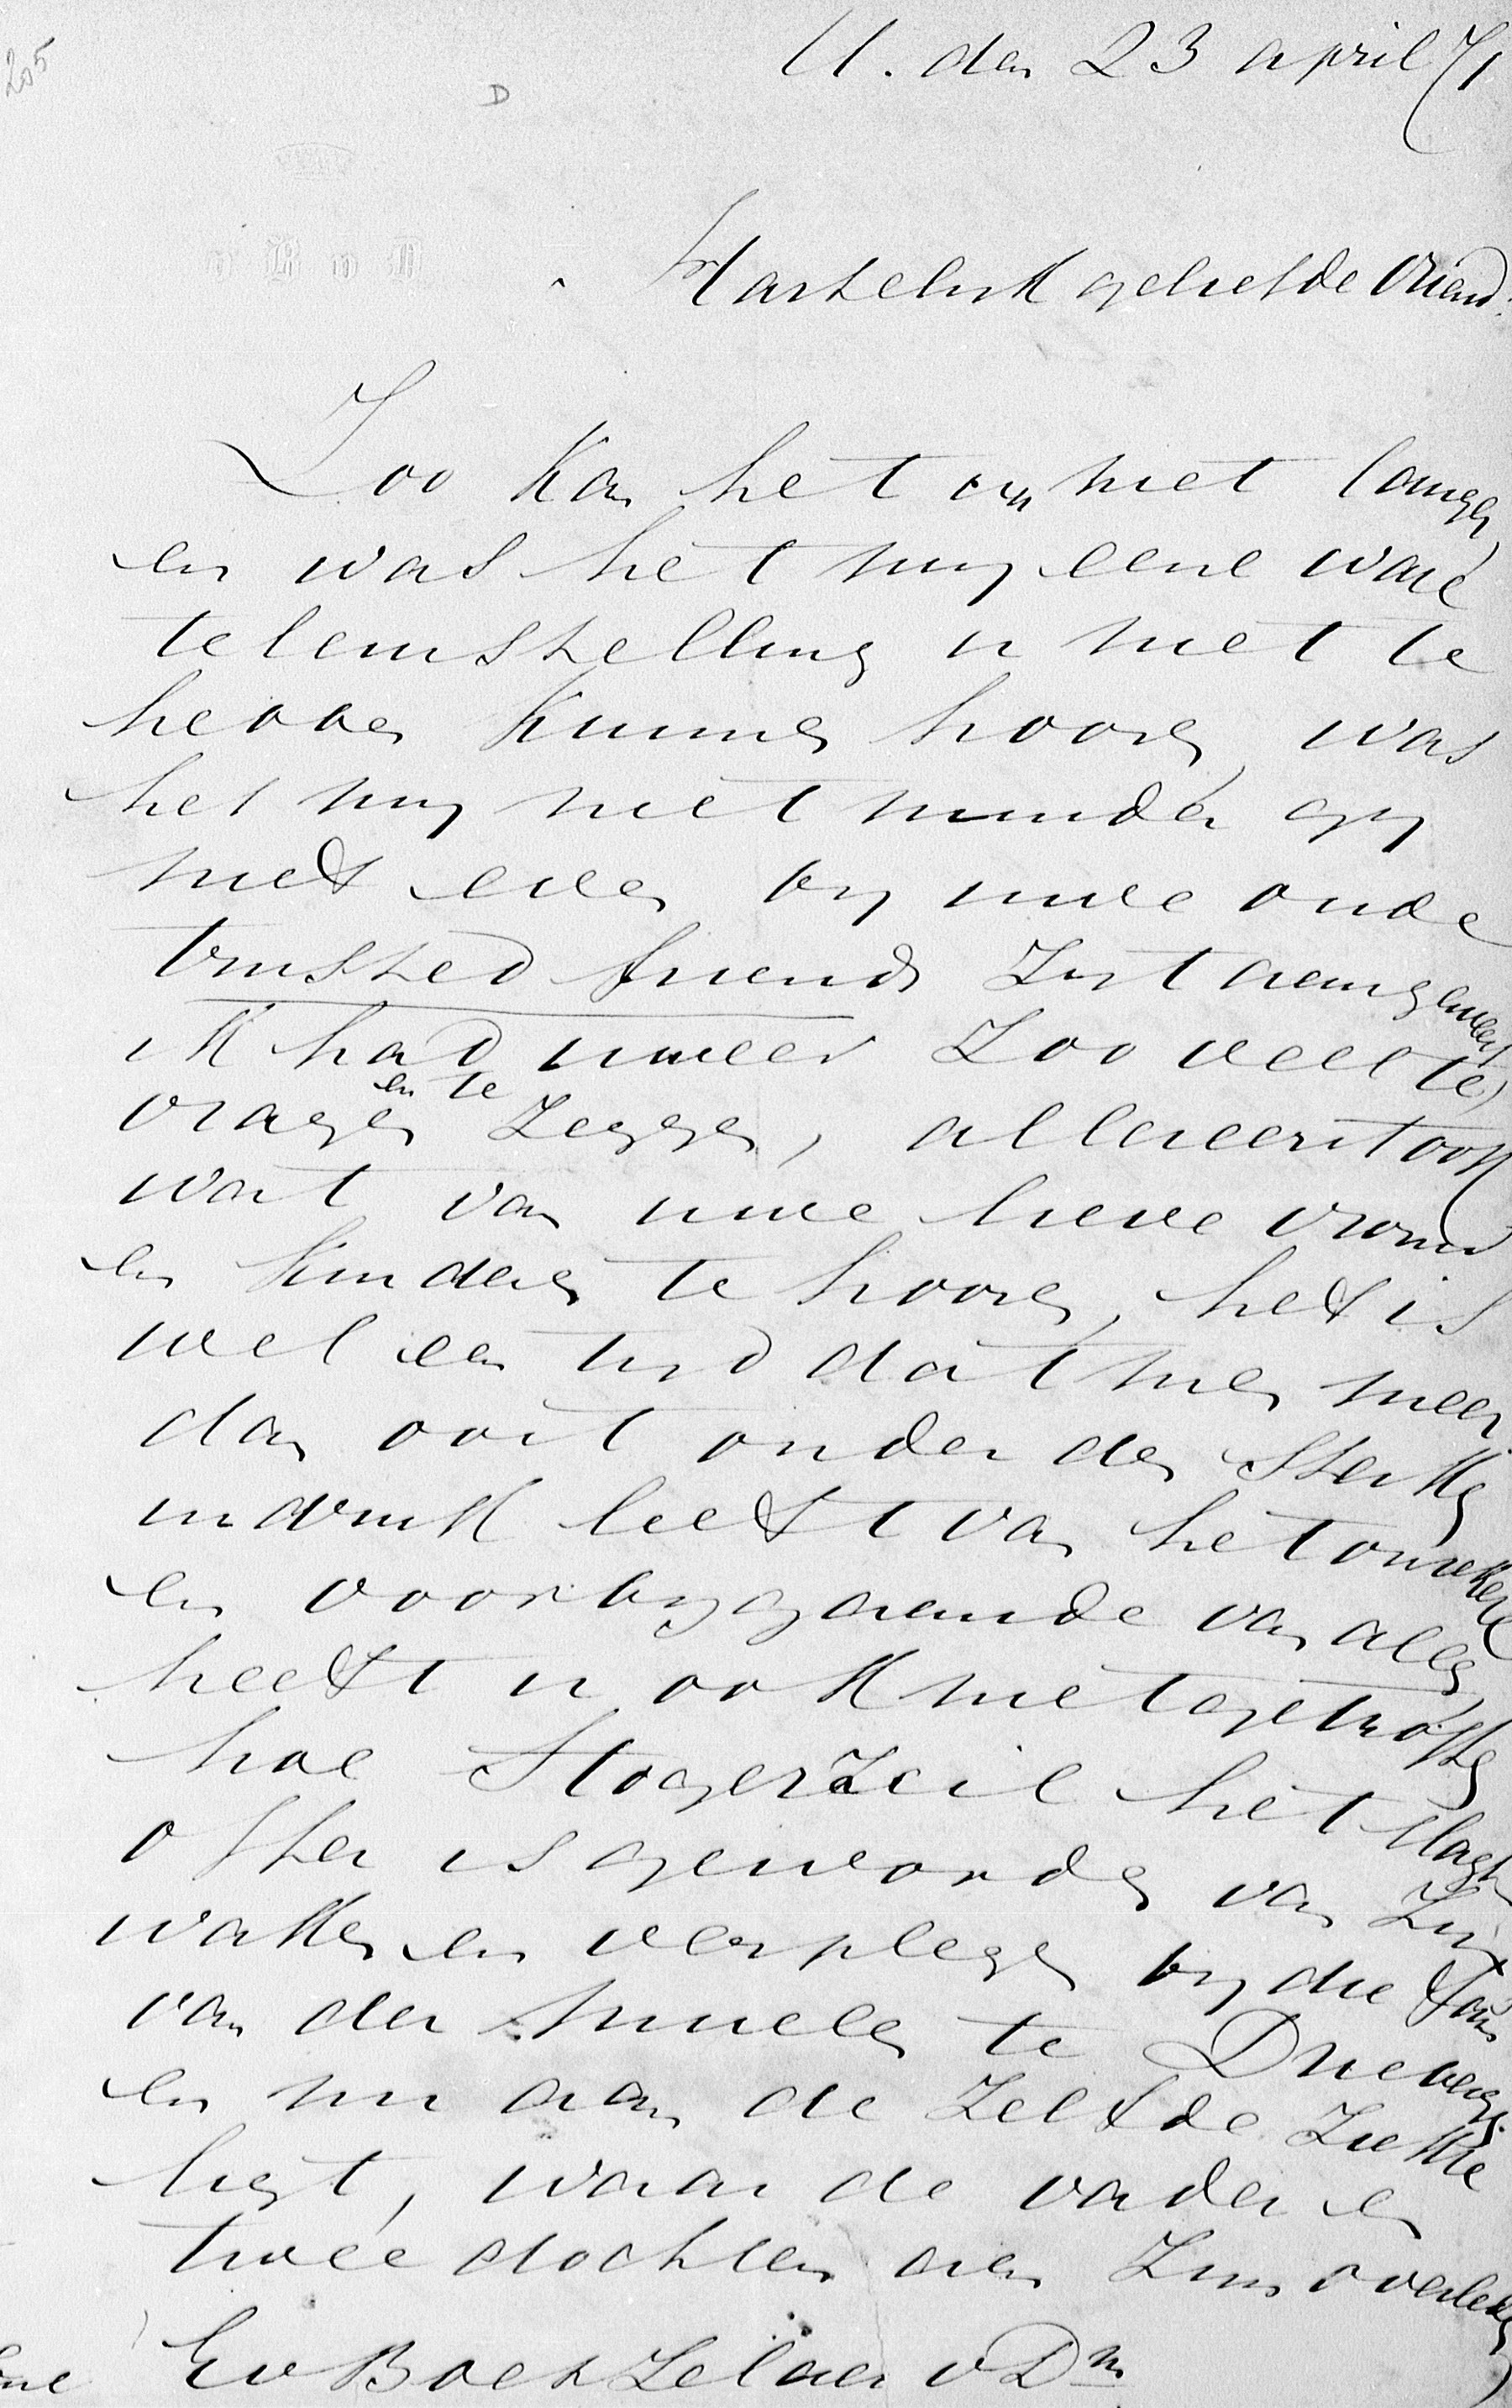 205
D
U. den 23 april 71
Hartelijk geliefde Vriend.
Zoo kan het niet langer
en was het mij eene ware
teleurstelling u niet te
hebben kunnen hooren, was
het mij niet minder gij
niet even bij uwe oude
trusted friends zijt aangeweest
ik had u weer zoo veel te
vragen en te zeggen, allereerst ook
wat van uwe lieve vrouw
en kinderen te hooren, het is
wel een tijd dat men meer
dan ooit onder den sterken
indruk leeft van het onzekere
en voorbijgaande van alles,
heeft u ook niet getroffen
hoe Stogerzeil het slagt
offer is geworden van zijn
waken en verplegen bij die fam
van der Muelen te Driebergen
en nu aan de zelfde ziekte
ligt, waar de vader en
twee dochters aan zijn overleden
Ev Boetzelaer v Dn